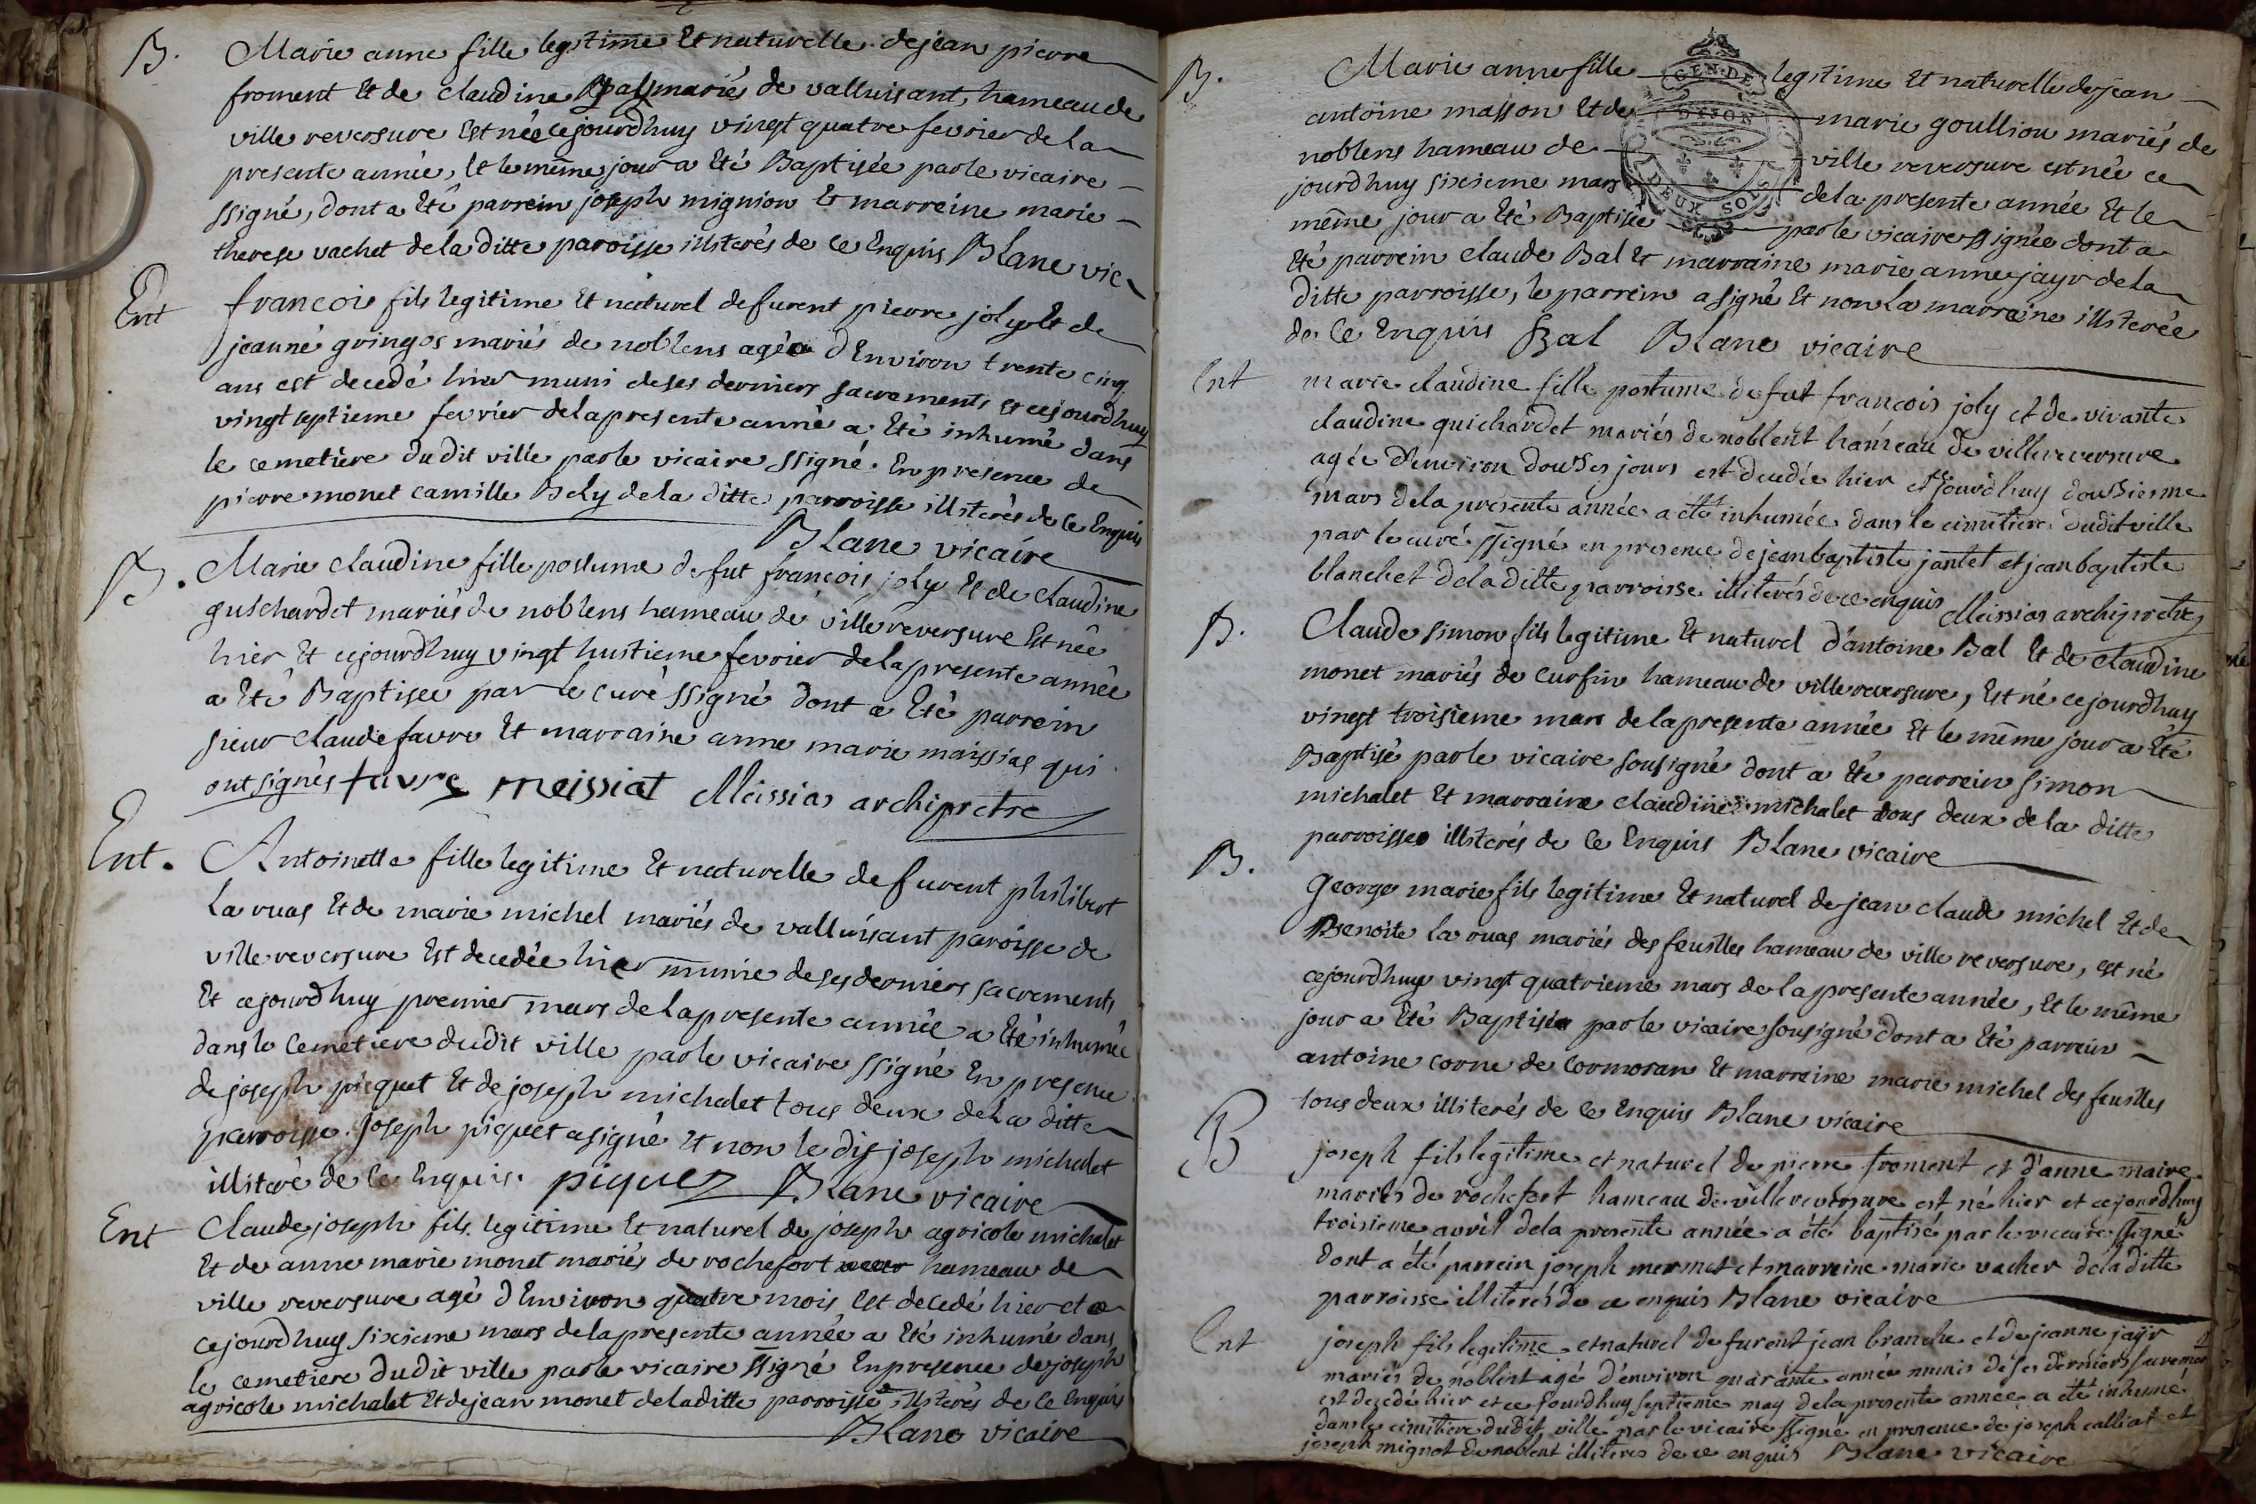 B. Marie anne fille legitime Et naturelle de jean pierre
froment Et de claudine mariés de valluisant, hameau de
ville reversure Est née cejourdhuy vingt quatre fevrier de la
presente année, Et le même jour a Eté Baptisée par le vicaire
ssigné, dont a Eté parrein joseph mignion Et marreine marie
therese vachet de la ditte paroisse illiterés de ce Enquis Blanc vic
Ent francois fils legitime Et naturel de furent pierre joly Et de
jeanne gringos mariés de noblens agé d'Environ trente cinq
ans est decedé hier muni de ses derniers sacrements et cejourdhuy
vingt septieme fevrier de la presente anné a Eté inhumé dans
le cemetiere dudit ville par le vicaire ssigné. En presence de
pierre monet camille Bely de la ditte parroisse illiterés de ce Enquis
Blanc vicaire
B. Marie claudine fille postume de fut francois joly Et de claudine
guichardet mariés de noblens hameau de ville reversure Est née
hier Et cejourdhuy vingt huitieme fevrier de la presente année
a Eté Baptisée par le curé ssigné dont a Eté parrein
sieur claude favre Et marraine anne marie maissias qui
ont signés favre meissiat Meissias archipretre
Ent. Antoinette fille legitime Et naturelle de furent philibert
La ruas Et de marie michel mariés de valluisant paroisse de
ville reversure Est decedée hier munie de ses derniers sacrements
Et cejourdhuy premier mars de la presente année a Eté inhumée
dans le cemetiere dudit ville par le vicaire ssigné En presence
de joseph picquet Et de joseph michalet tous deux de la ditte
parroisse. joseph piquet a signé Et non le dit joseph michalet
illiteré de ce Enquis. piquez Blanc vicaire
Ent Claude joseph fils legitime Et naturel de joseph agricole michalet
Et de anne marie monet mariés de rochefort hameau de
ville reversure agé d'Environ quatre mois Est decedé hier et
cejourdhuy sixieme mars de la presente année a Eté inhumé dans
le cemetiere dudit ville par le vicaire ssigné En presence de joseph
agricole michalet Et de jean monet de la ditte parroisse illiterés de ce Enquis
Blanc vicaire
GEN. DE DIJON
DEUX SOLS
B. Marie anne fille legitime Et naturelle de jean
antoine masson Et de marie goullion mariés de
noblens hameau de ville reversure est née ce
jourdhuy sixieme mars de la presente année Et le
même jour a Eté Baptisée par le vicaire ssignée dont a
Eté parrein claude Bal Et marraine marie anne jayr de la
ditte parroisse, le parrein a signé Et non La marraine illiterée
de ce Enquis Bal Blanc vicaire
Ent marie claudine fille postume de fut francois joly et de vivante
claudine guichardet mariés de noblent hameau de ville reversure
agée d'environ douzes jours est decedée hier et cejourdhuy douzieme
mars de la presente année a eté inhumée dans le cimitiere dudit ville
par le curé ssigné en presence de jean baptiste jantet et jean baptiste
blanchet de la ditte parroisse illiterés de ce enquis Meissias archipretre
B. Claude simon fils legitime Et naturel d'antoine Bal Et de claudine
monet mariés de Curfin hameau de ville reversure, Est né cejourdhuy
vingt troisieme mars de la presente année Et le même jour a Eté
Baptisé par le vicaire sousigné dont a Eté parrein simon
michalet Et marraine claudine michalet tous deux de la ditte
parroisse illiterés de ce Enquis Blanc vicaire
B. George marie fils legitime Et naturel de jean claude michel Et de
Benoite La ruas mariés des feuilles hameau de ville reversure, est né
cejourdhuy vingt quatrieme mars de la presente année, Et le même
jour a Eté Baptisé par le vicaire sousigné dont a Eté parrein
antoine corne de Cormoran Et marreine marie michel des feuilles
tous deux illiterés de ce Enquis Blanc vicaire
B joseph fils legitime et naturel de pierre froment et d'anne maire
mariés de rochefort hameau de ville reversure est né hier et cejourdhuy
troisieme avril de la presente année a eté baptisé par le vicaire ssigné
dont a été parrein joseph mermet et marreine marie vacher de la ditte
parroisse illiterés de ce enquis Blanc vicaire
Ent joseph fils legitime et naturel de furent jean branche et de jeanne jayr
mariés de noblent agé d'environ quarante année munis de ses derniers sacremen
est decedé hier et ce jourdhuy septieme may de la presente annee a eté inhumé
dans le cimitiere dudit ville par le vicaire ssigné en presence de joseph calliat et
joseph mignot de noblent illiteres de ce enquis Blanc vicaire